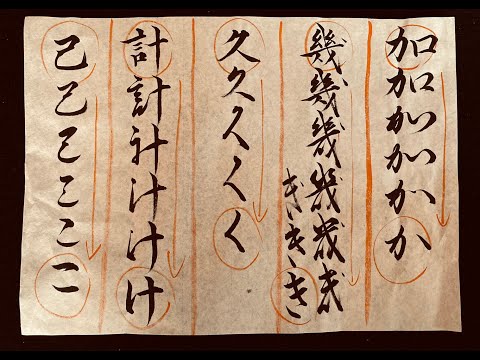 加加加かかか
幾幾幾幾幾幾
ききき
久久久くく
計計計けけけ
己己己ここ二